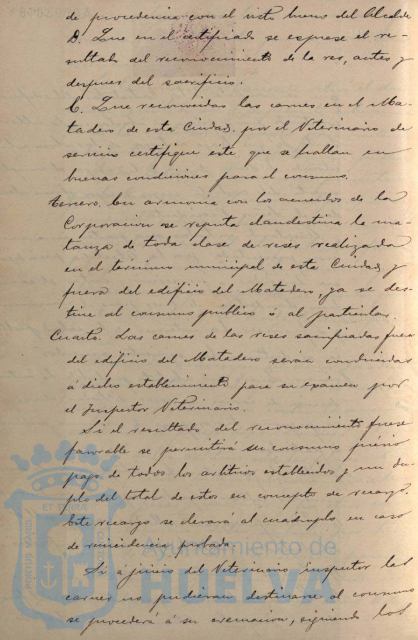 de procedencia con el visto bueno del Alcalde
B. Que en el certificado se esprese el re-
sultado del reconocimiento de la res, antes y
despues del sacrificio.
C. Que reconocidas las carnes en el Ma-
tadero de esta Ciudad, por el Veterinario de
servicio certifique éste que se hallan en
buenas condiciones para el consumo.
Tercero. En armonia con los acuerdos de la
Corporacion se reputa clandestina la ma-
tanza de toda clase de reses realizada
en el término municipal de esta Ciudad y
fuera del edificio del Matadero, ya se des-
tine al consumo público ó al particular.
Cuarto. Las carnes de las reses sacrificadas fuera
del edificio del Matadero serán conducidas
á dicho establecimiento para su exámen por
el Inspector Veterinario.
Si el resultado del reconocimiento fuese
favorable se permitirá su consumo prévio
pago de todos los arbitrios establecidos y un du-
plo del total de estos en concepto de recargo.
Este recargo se elevará al cuádruplo en caso
de reincidencia probada.
Si a juicio del Veterinario inspector las
carnes no pudieran destinarse al consumo
se procederá á su cremacion, siguiendo los
Ayuntamiento de
HUELVA